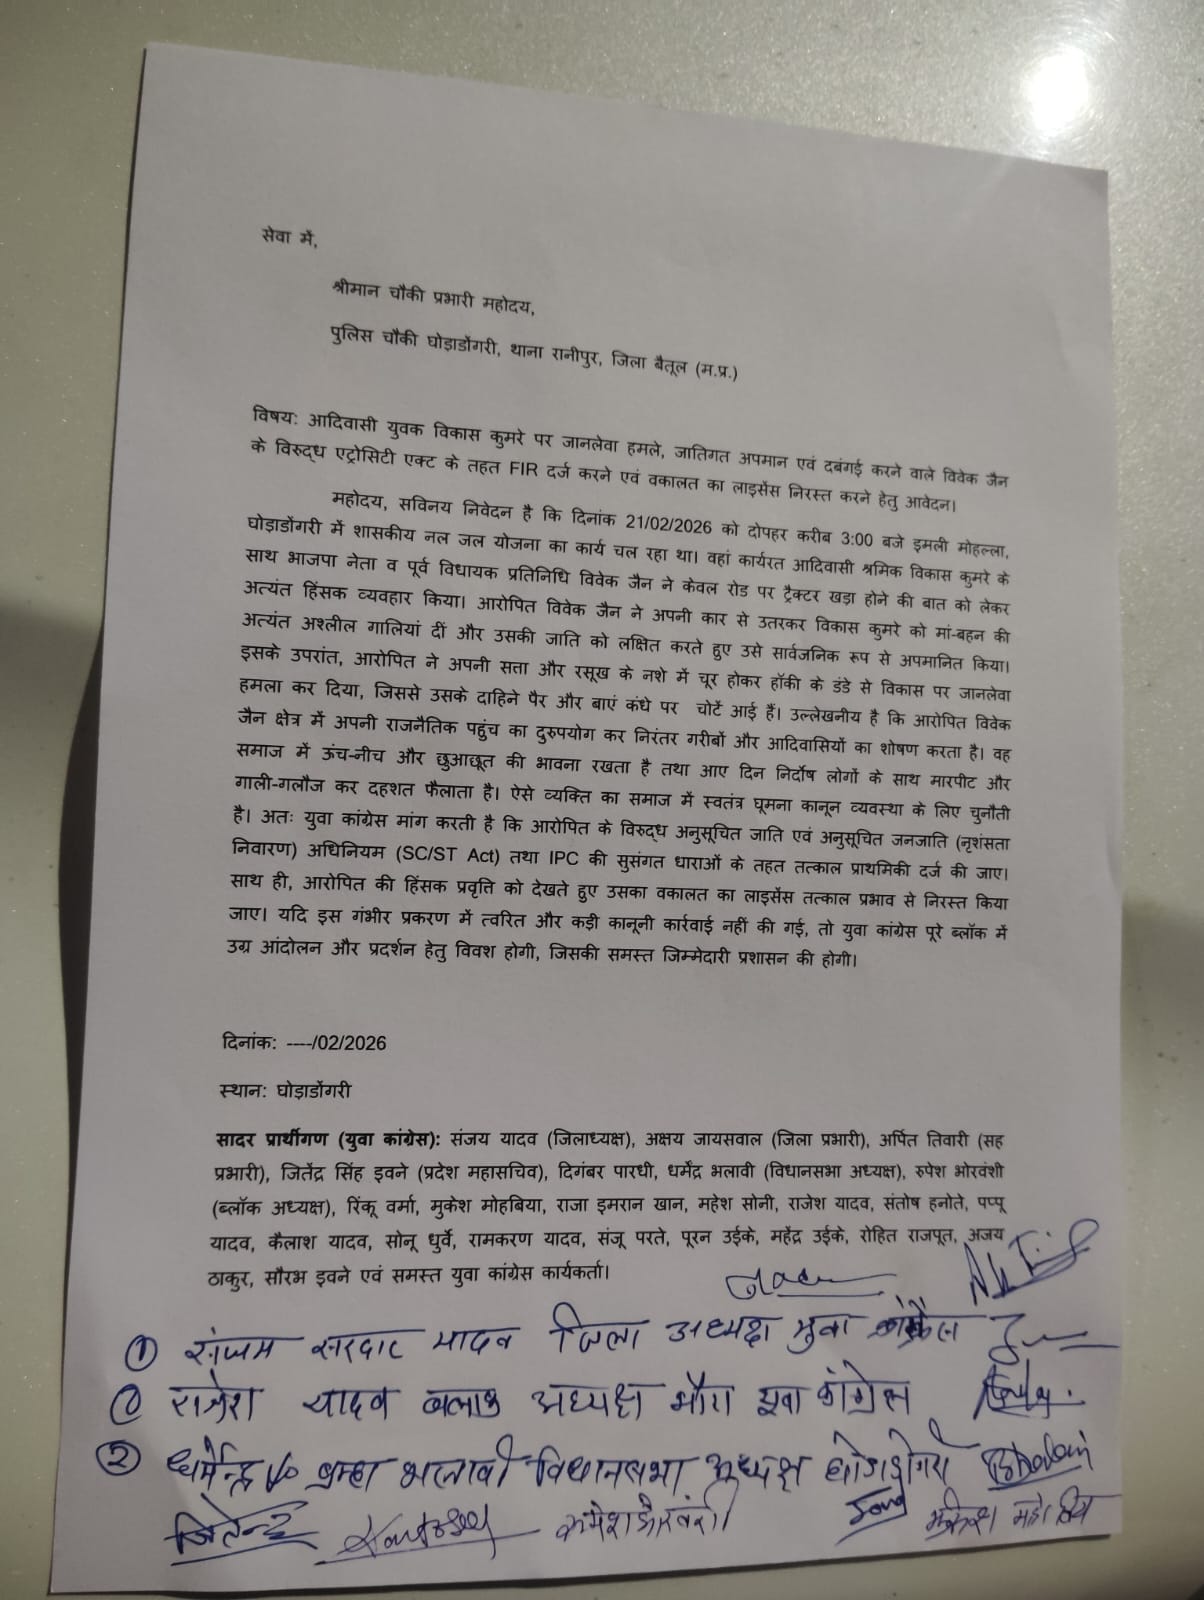 सेवा में,
श्रीमान चौकी प्रभारी महोदय,
पुलिस चौकी घोड़ाडोंगरी, थाना रानीपुर, जिला बैतूल (म.प्र.)
विषय: आदिवासी युवक विकास कुमरे पर जानलेवा हमले, जातिगत अपमान एवं दबंगई करने वाले विवेक जैन
के विरुद्ध एट्रोसिटी एक्ट के तहत FIR दर्ज करने एवं वकालत का लाइसेंस निरस्त करने हेतु आवेदन।
महोदय, सविनय निवेदन है कि दिनांक 21/02/2026 को दोपहर करीब 3:00 बजे इमली मोहल्ला,
घोड़ाडोंगरी में शासकीय नल जल योजना का कार्य चल रहा था। वहां कार्यरत आदिवासी श्रमिक विकास कुमरे के
साथ भाजपा नेता व पूर्व विधायक प्रतिनिधि विवेक जैन ने केवल रोड पर ट्रैक्टर खड़ा होने की बात को लेकर
अत्यंत हिंसक व्यवहार किया। आरोपित विवेक जैन ने अपनी कार से उतरकर विकास कुमरे को मां-बहन की
अत्यंत अश्लील गालियां दीं और उसकी जाति को लक्षित करते हुए उसे सार्वजनिक रूप से अपमानित किया।
इसके उपरांत, आरोपित ने अपनी सत्ता और रसूख के नशे में चूर होकर हॉकी के डंडे से विकास पर जानलेवा
हमला कर दिया, जिससे उसके दाहिने पैर और बाएं कंधे पर चोटें आई हैं। उल्लेखनीय है कि आरोपित विवेक
जैन क्षेत्र में अपनी राजनैतिक पहुंच का दुरुपयोग कर निरंतर गरीबों और आदिवासियों का शोषण करता है। वह
समाज में ऊंच-नीच और छुआछूत की भावना रखता है तथा आए दिन निर्दोष लोगों के साथ मारपीट और
गाली-गलौज कर दहशत फैलाता है। ऐसे व्यक्ति का समाज में स्वतंत्र घूमना कानून व्यवस्था के लिए चुनौती
है। अतः युवा कांग्रेस मांग करती है कि आरोपित के विरुद्ध अनुसूचित जाति एवं अनुसूचित जनजाति (नृशंसता
निवारण) अधिनियम (SC/ST Act) तथा IPC की सुसंगत धाराओं के तहत तत्काल प्राथमिकी दर्ज की जाए।
साथ ही, आरोपित की हिंसक प्रवृत्ति को देखते हुए उसका वकालत का लाइसेंस तत्काल प्रभाव से निरस्त किया
जाए। यदि इस गंभीर प्रकरण में त्वरित और कड़ी कानूनी कार्रवाई नहीं की गई, तो युवा कांग्रेस पूरे ब्लॉक में
उग्र आंदोलन और प्रदर्शन हेतु विवश होगी, जिसकी समस्त जिम्मेदारी प्रशासन की होगी।
दिनांक: ----/02/2026
स्थान: घोड़ाडोंगरी
सादर प्रार्थीगण (युवा कांग्रेस): संजय यादव (जिलाध्यक्ष), अक्षय जायसवाल (जिला प्रभारी), अर्पित तिवारी (सह
प्रभारी), जितेंद्र सिंह इवने (प्रदेश महासचिव), दिगंबर पारधी, धर्मेंद्र भलावी (विधानसभा अध्यक्ष), रुपेश भोरवंशी
(ब्लॉक अध्यक्ष), रिंकू वर्मा, मुकेश मोहबिया, राजा इमरान खान, महेश सोनी, राजेश यादव, संतोष हनोते, पप्पू
यादव, कैलाश यादव, सोनू धुर्वे, रामकरण यादव, संजू परते, पूरन उईके, महेंद्र उईके, रोहित राजपूत, अजय
ठाकुर, सौरभ इवने एवं समस्त युवा कांग्रेस कार्यकर्ता।
① संजय सरदार यादव जिला अध्यक्ष युवा कांग्रेस
राजेश यादव ब्लाक अध्यक्ष युवा कांग्रेस
② धर्मेन्द्र भलावी विधानसभा अध्यक्ष
जितेन्द्र